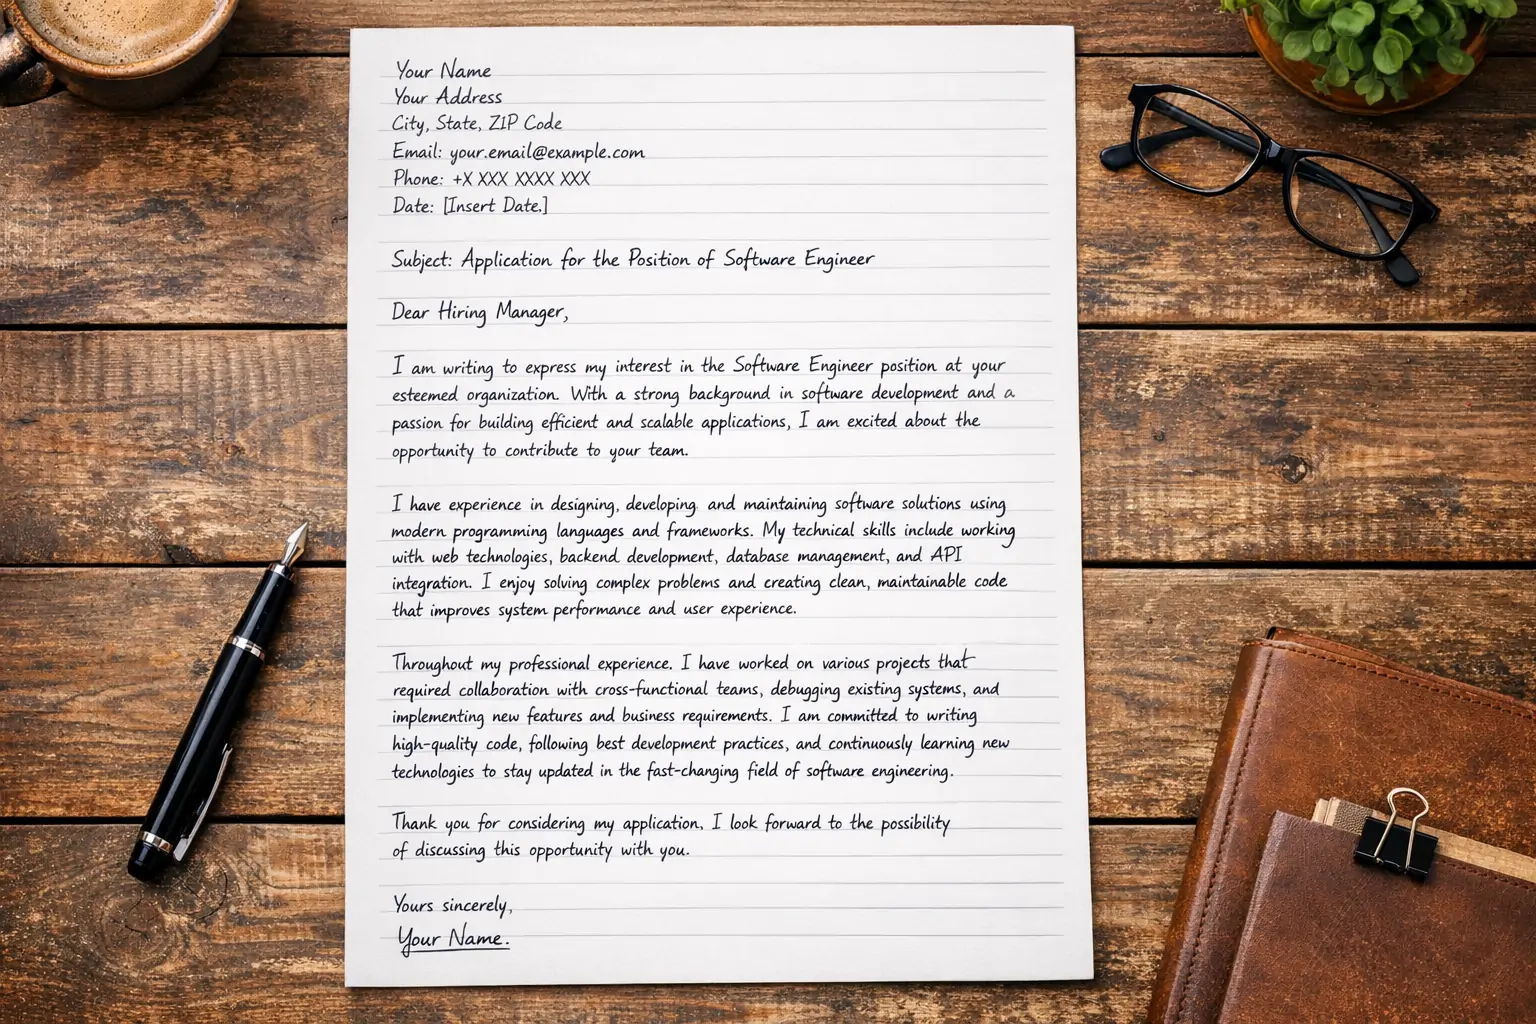 Your Name
Your Address
City, State, ZIP Code
Email: your.email@example.com
Phone: +X XXX XXXX XXX
Date: [Insert Date.]
Subject: Application for the Position of Software Engineer
Dear Hiring Manager,
I am writing to express my interest in the Software Engineer position at your
esteemed organization. With a strong background in software development and a
passion for building efficient and scalable applications, I am excited about the
opportunity to contribute to your team.
I have experience in designing, developing and maintaining software solutions using
modern programming languages and frameworks. My technical skills include working
with web technologies, backend development, database management, and API
integration. I enjoy solving complex problems and creating clean, maintainable code
that improves system performance and user experience.
Throughout my professional experience. I have worked on various projects that
required collaboration with cross-functional teams, debugging existing systems, and
implementing new features and business requirements. I am committed to writing
high-quality code, following best development practices, and continuously learning new
technologies to stay updated in the fast-changing field of software engineering.
Thank you for considering my application. I look forward to the possibility
of discussing this opportunity with you.
Yours sincerely,
Your Name.